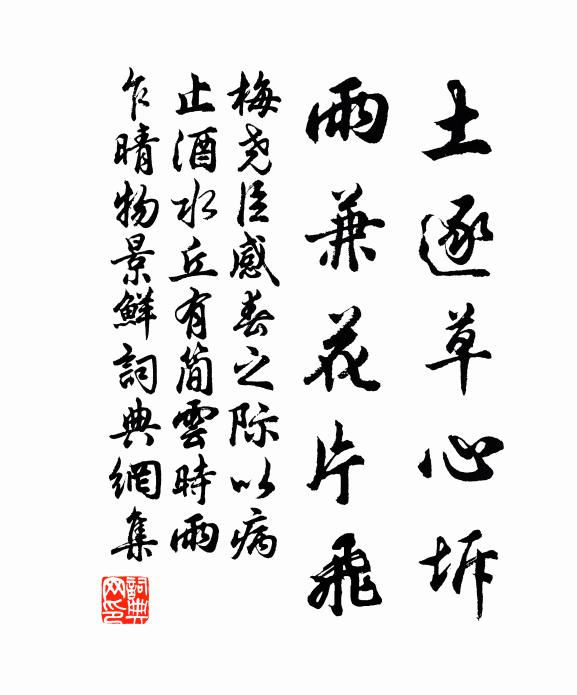 土逐草心坼
雨兼花片飛
梅堯臣感春之際以病
止酒水丘有簡雲時雨
乍晴物景鮮詞典網集
詞典
网印